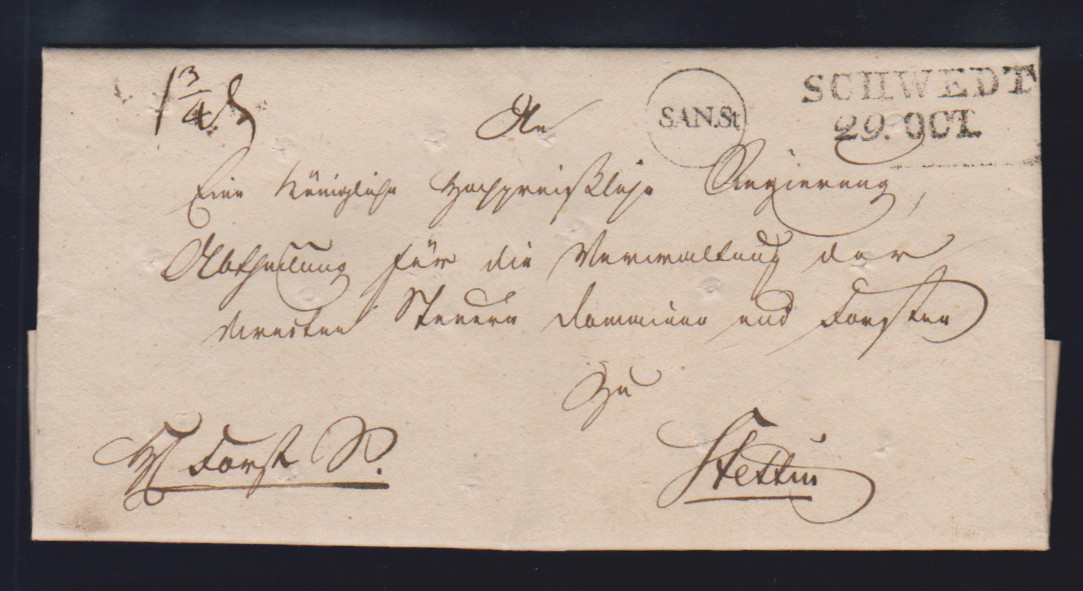 1 3/4
SAN.St
SCHWEDT
29. OCT.
An
Eine Königliche Hochpreißliche Regierung,
Abtheilung für die Verwaltung der
directen Steuern Domainen und Forsten
Zu
Stettin
Forst S.